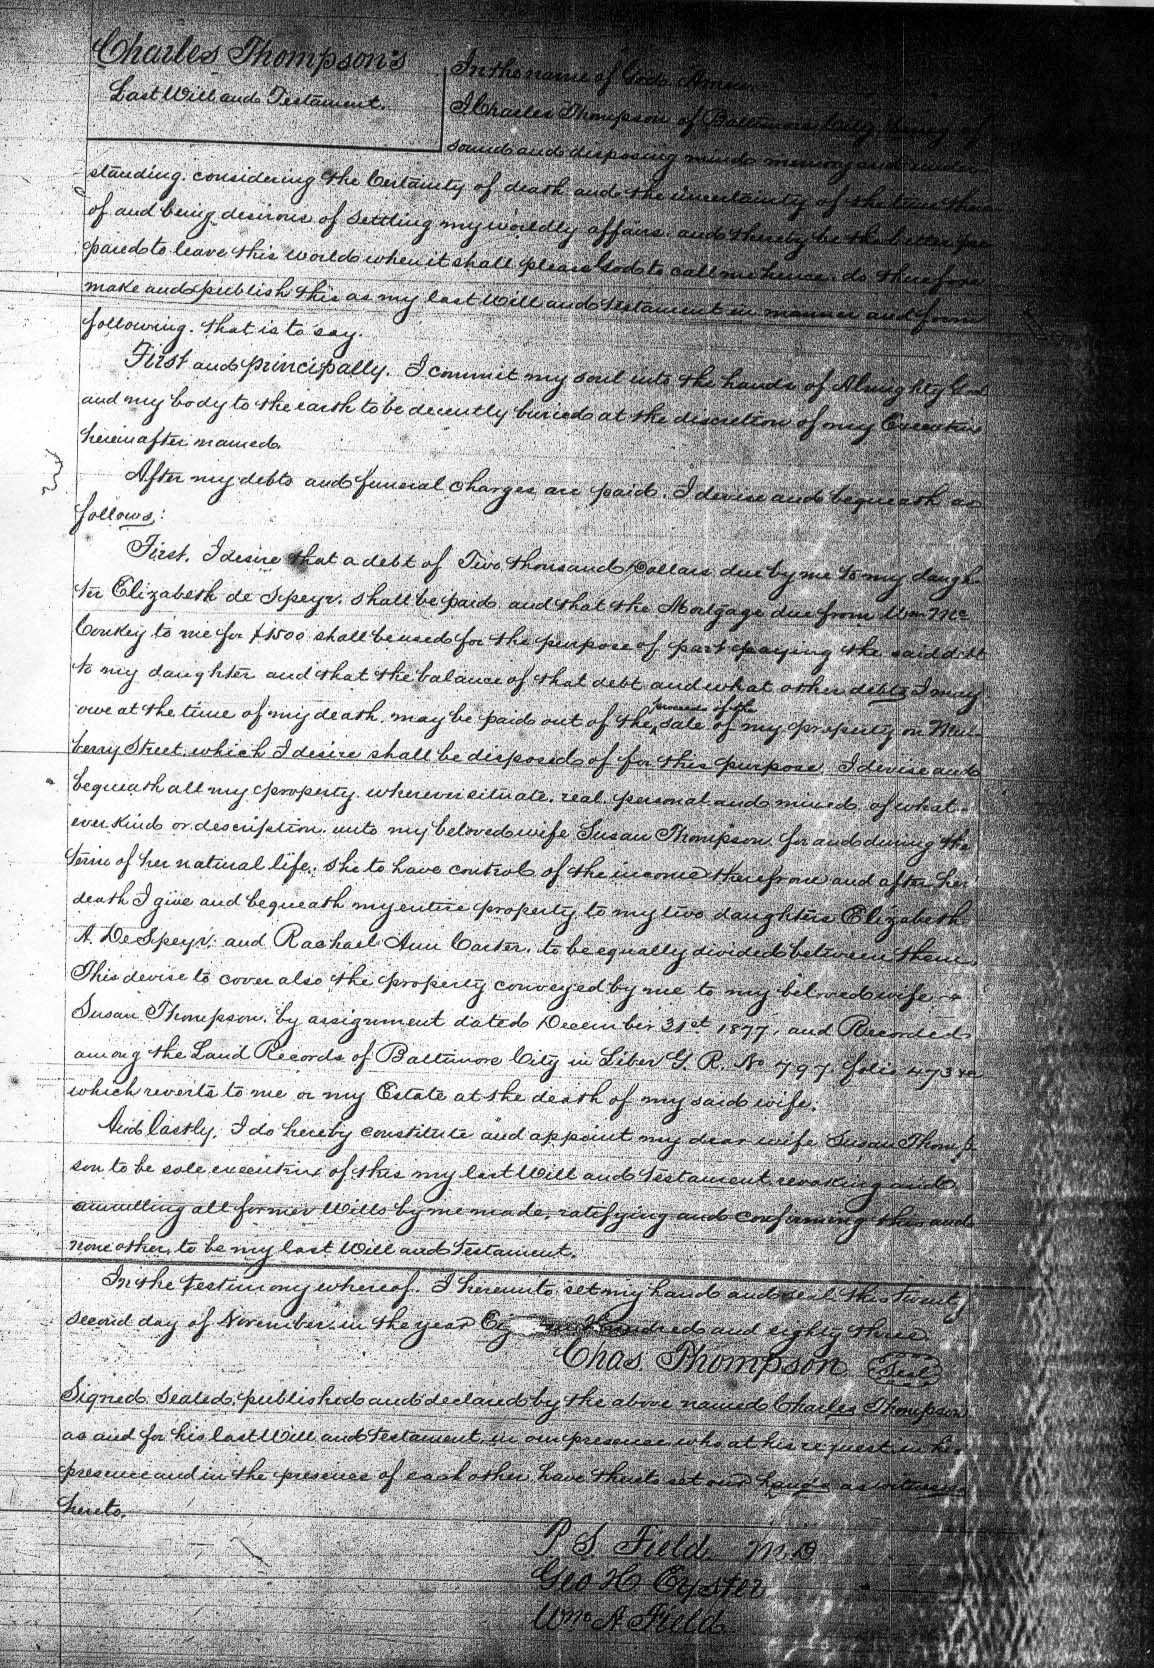 Charles Thompson's
Last Will and Testament.
In the name of God Amen.
I Charles Thompson of Baltimore City being of
sound and disposing mind memory and under-
standing. considering the Certainty of death and the uncertainty of the time there
of and being desirous of settling my worldly affairs. and thereby be the better pre
pared to leave this world when it shall please God to call me hence. do therefore
make and publish this as my last Will and Testament in manner and form
following. that is to say.
First and principally. I commit my soul into the hands of Almighty God
and my body to the earth to be decently buried at the discretion of my Executrix
hereinafter named.
After my debts and funeral charges are paid. I devise and bequeath as
follows:
First. I desire that a debt of Two thousand Dollars due by me to my daugh
ter Elizabeth de Speyr. shall be paid. and that the Mortgage due from Wm Mc
Conkey to me for $1500 shall be used for the purpose of part paying the said debt
to my daughter and that the balance of that debt and what other debts I may
owe at the time of my death. may be paid out of the proceeds of the sale of my property on Mul
berry Street. which I desire shall be disposed of for this purpose. I devise and
bequeath all my property wherever situate. real. personal and mixed of what-
ever kind or description. unto my beloved wife Susan Thompson for and during the
term of her natural life. she to have control of the income therefrom and after her
death I give and bequeath my entire property to my two daughters Elizabeth
A. De Speyr. and Rachael Ann Carter. to be equally divided between them.
This devise to cover also the property conveyed by me to my beloved wife
Susan Thompson. by assignment dated December 31st 1877, and Recorded
among the Land Records of Baltimore City in Liber G. R. No 797 folio 473 &c
which reverts to me or my Estate at the death of my said wife.
And lastly. I do hereby constitute and appoint my dear wife Susan Thomp
son to be sole executrix of this my last Will and Testament. revoking and
annulling all former Wills by me made, ratifying and confirming this and
none other, to be my last Will and Testament.
In the testimony whereof. I hereunto set my hand and seal this twenty
second day of November. in the year hundred and eighty three
Chas Thompson Seal
Signed. sealed. published and declared by the above named Charles Thompson
as and for his last Will and Testament in our presence who at his request in his
presence and in the presence of each other have thereto set our hands as witnesses
hereto.
P. S. Field. M.D
Geo H Eyster
Wm A. Field